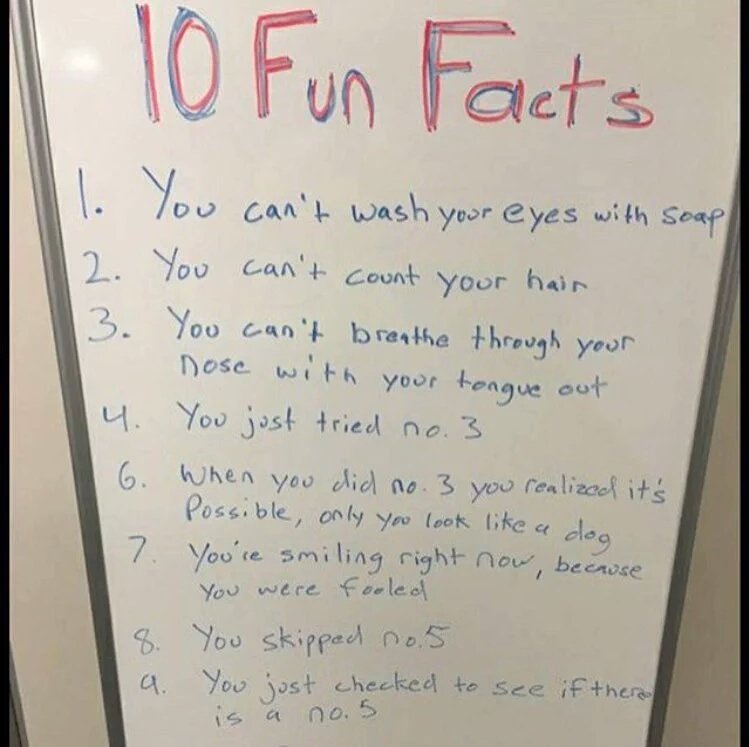 10 Fun Facts
1. You can't wash your eyes with soap
2. You can't count your hair
3. You can't breathe through your
nose with your tongue out
4. You just tried no. 3
6. When you did no. 3 you realized it's
Possible, only you look like a dog
7. You're smiling right now, because
you were fooled
8. You skipped no.5
9. You just checked to see if there
is a no. 5